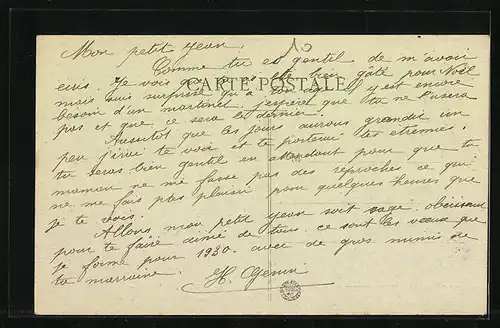 Mon petit Jean.
Comme tu es gentil de m'avoir
écris. Je vois que tu as été bien gâté pour Noël
CARTE POSTALE
mais suis surprise qu'à ton age il y est encore
besoin d'un martinet. j'espère que tu ne l'usera
pas et que ce sera le dernier.
Aussitôt que les jours aurons grandit un
peu j'irai te voir et te porterai tes étrennes.
tu seras bien gentil en attendant pour que ta
maman ne me fasse pas des reproches ce qui
ne me fais pas plaisir pour quelques heures que
je te vois.
Allons mon petit Jean soit sage obéissant
pour te faire aimé de tous. ce sont les vœux que
je forme pour 1930. avec de gros mimis de
ta marraine.
H.